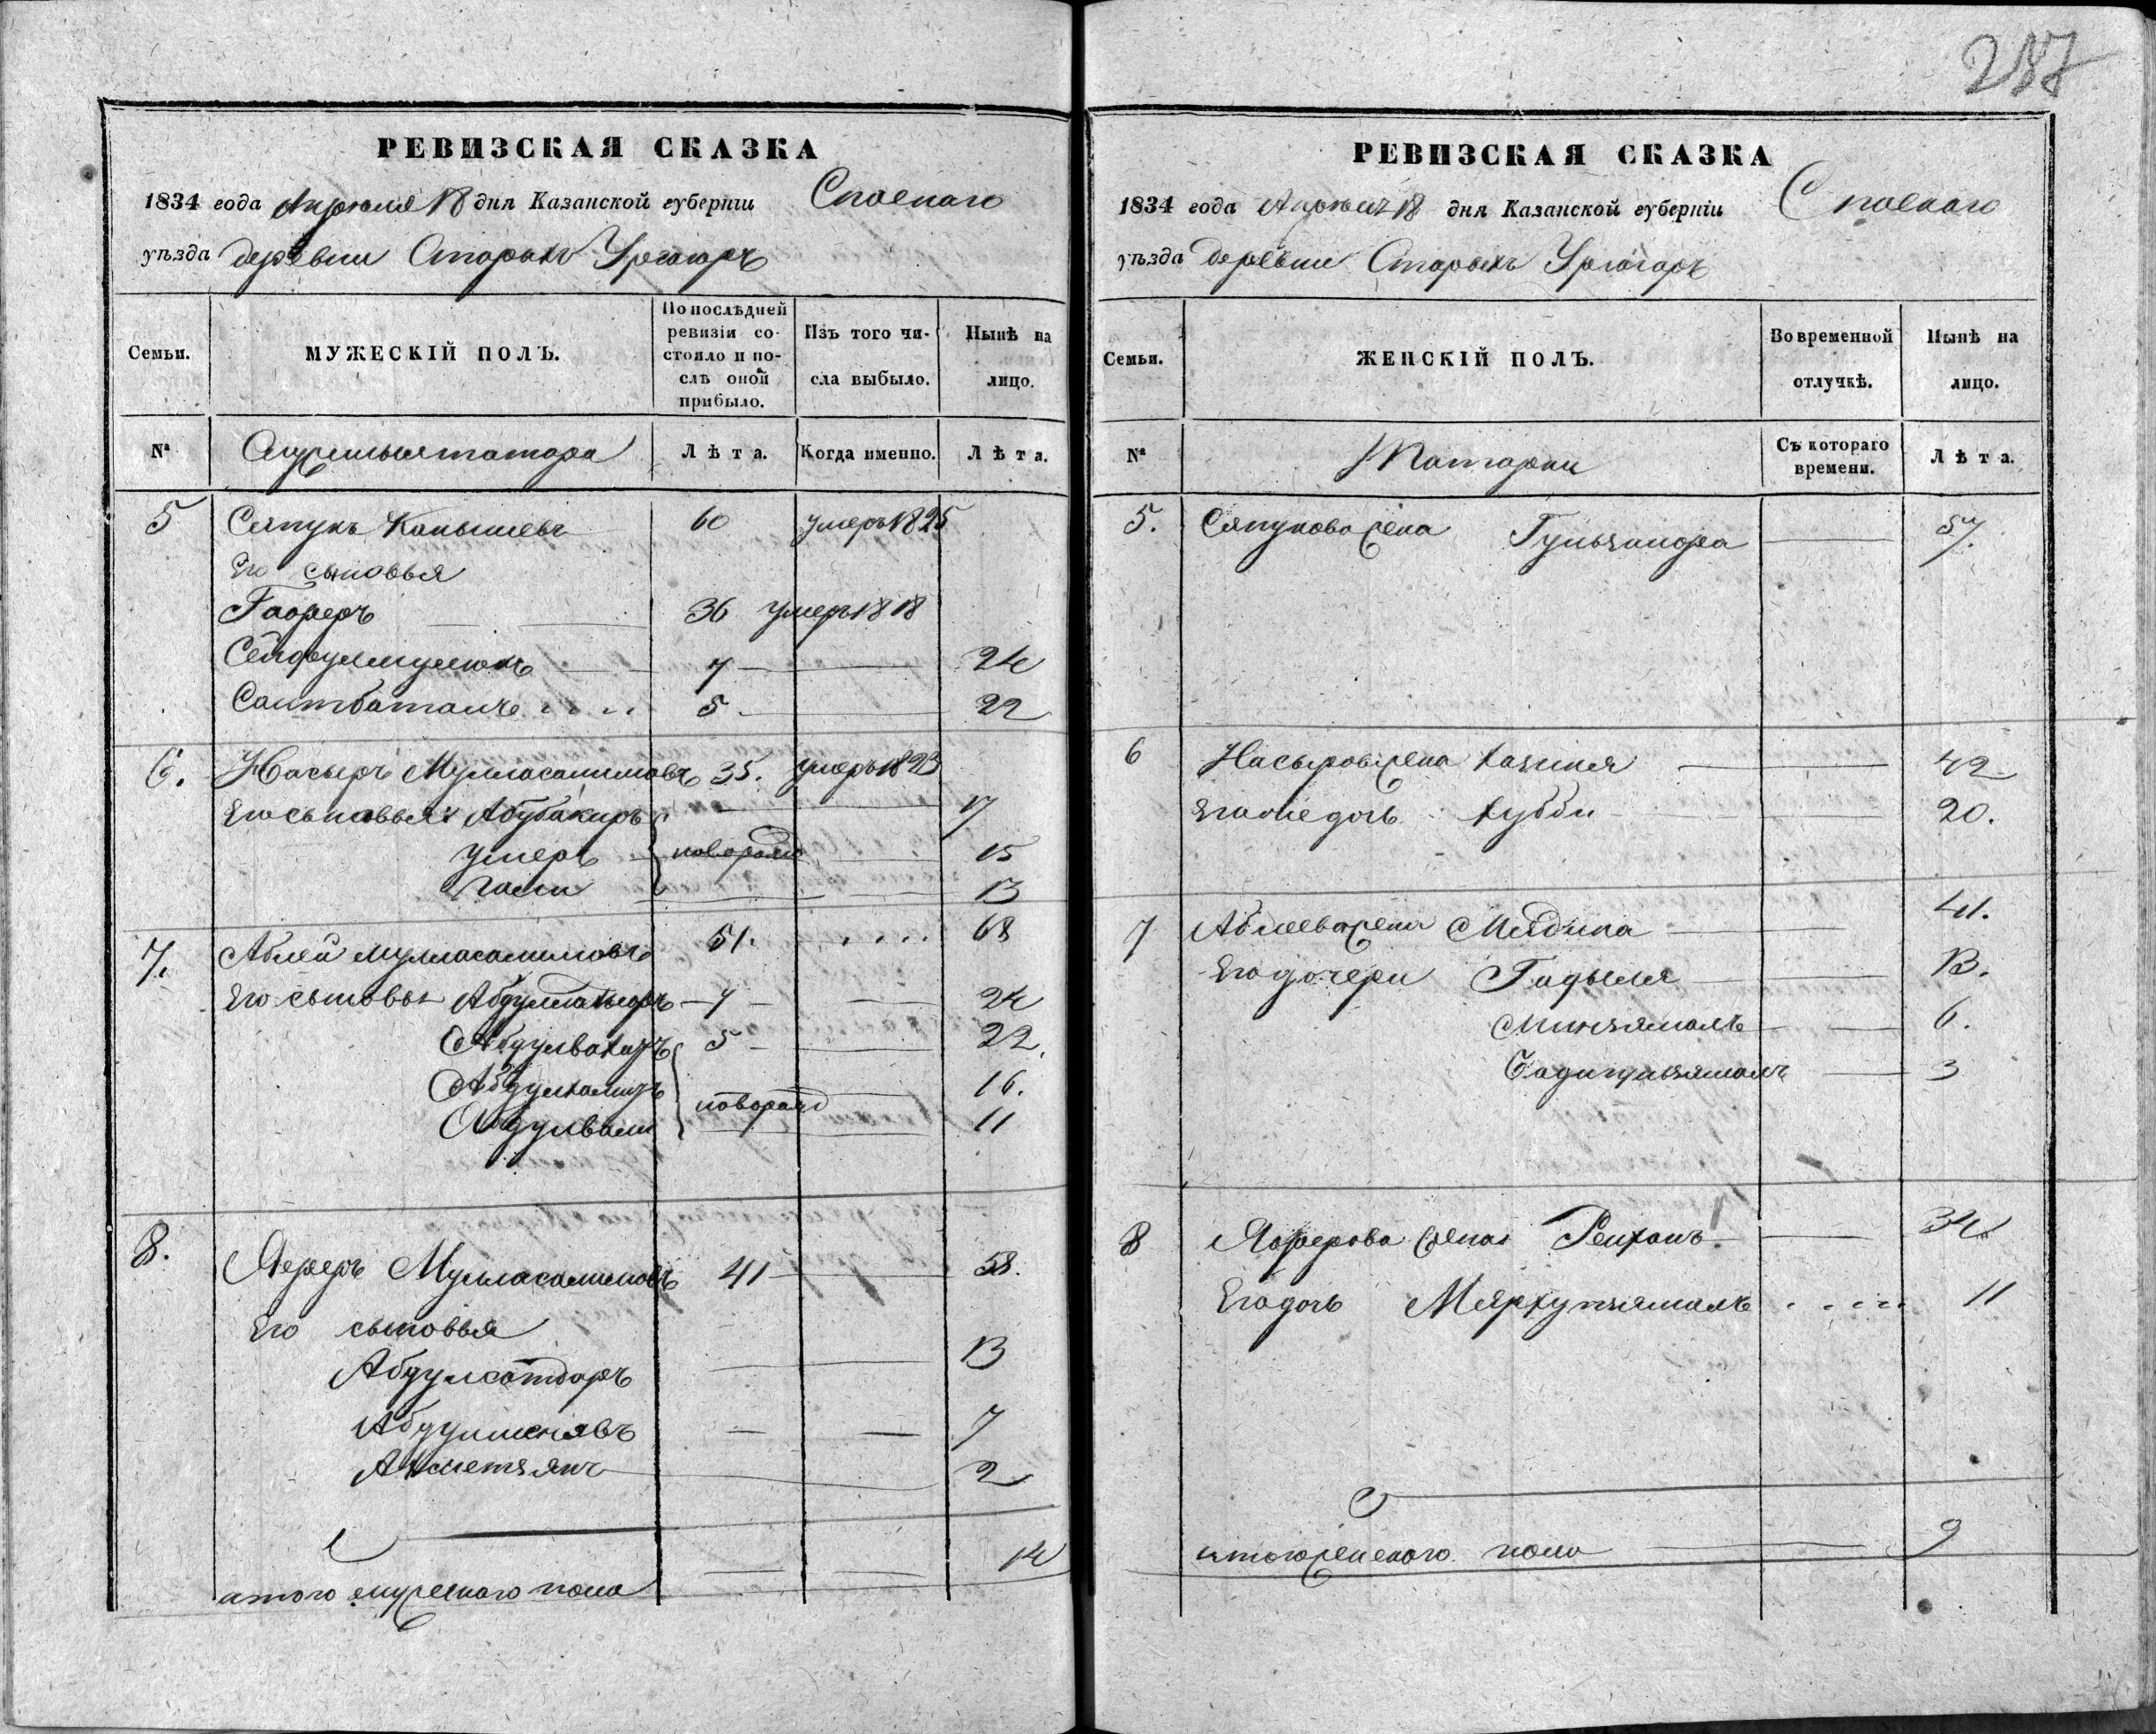 287
РЕВИЗСКАЯ СКАЗКА
1834 года Апреля 18 дня Казанской губерніи Спаскаго
уѣзда деревни Старыхъ Ургагаръ
Семьи.
МУЖЕСКІЙ ПОЛЪ.
По послѣдней ревизіи состояло и послѣ оной прибыло.
Изъ того числа выбыло.
Нынѣ на лицо.
№ татара Лѣта. Когда именно. Лѣта.
5 Сяпукъ Канышевъ 60 умеръ 1825
Его сыновья
Гаферъ 36 умеръ 1818
Сейфулмулюкъ 7 24
Саитбаталъ 5 22
6. Насыръ Мулласалимовъ 35. умеръ 1823
Его сыновья: Абубакиръ 17
Умеръ новорожд 15
Гали 13
7. Аблей Мулласалимовъ 51. 68
Его сыновья Абдулкадыръ 7 24
Абдулвахитъ 5 22.
Абдулхалитъ новорожд 16.
Абдулвали 11
8. Яферъ Мулласалимовъ 41 58.
Его сыновья
Абдулсатдаръ 13
7
Ахметзянъ 2
итого мужескаго пола 14
РЕВИЗСКАЯ СКАЗКА
1834 года Апреля 18 дня Казанской губерніи Спаскаго
уѣзда деревни Старыхъ Ургагаръ
Семьи.
ЖЕНСКІЙ ПОЛЪ.
Во временной отлучкѣ.
Нынѣ на лицо.
№ Татарки Съ котораго времени. Лѣта.
5. Сяпукова жена Гульзифа 57.
6 Насырова жена 42
Его же дочь Хубби 20.
7 Аблеева жена Мядина 41.
Его дочери Гадыля 13.
Минзямалъ 6.
3
8 Яферова жена Рейханъ 34
Его дочь Мярхупзямалъ 11
итого женскаго пола 9